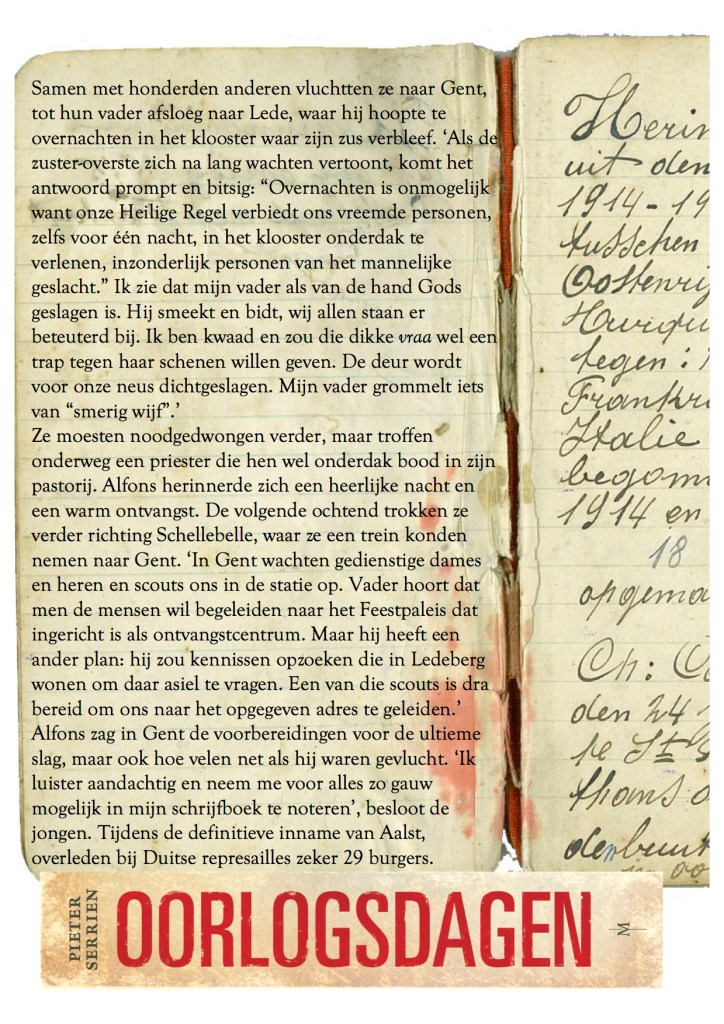 Samen met honderden anderen vluchtten ze naar Gent,
tot hun vader afsloeg naar Lede, waar hij hoopte te
overnachten in het klooster waar zijn zus verbleef. ‘Als de
zuster-overste zich na lang wachten vertoont, komt het
antwoord prompt en bitsig: “Overnachten is onmogelijk
want onze Heilige Regel verbiedt ons vreemde personen,
zelfs voor één nacht, in het klooster onderdak te
verlenen, inzonderlijk personen van het mannelijke
geslacht.” Ik zie dat mijn vader als van de hand Gods
geslagen is. Hij smeekt en bidt, wij allen staan er
beteuterd bij. Ik ben kwaad en zou die dikke vraa wel een
trap tegen haar schenen willen geven. De deur wordt
voor onze neus dichtgeslagen. Mijn vader grommelt iets
van “smerig wijf”.’
Ze moesten noodgedwongen verder, maar troffen
onderweg een priester die hen wel onderdak bood in zijn
pastorij. Alfons herinnerde zich een heerlijke nacht en
een warm ontvangst. De volgende ochtend trokken ze
verder richting Schellebelle, waar ze een trein konden
nemen naar Gent. ‘In Gent wachten gedienstige dames
en heren en scouts ons in de statie op. Vader hoort dat
men de mensen wil begeleiden naar het Feestpaleis dat
ingericht is als ontvangstcentrum. Maar hij heeft een
ander plan: hij zou kennissen opzoeken die in Ledeberg
wonen om daar asiel te vragen. Een van die scouts is dra
bereid om ons naar het opgegeven adres te geleiden.’
Alfons zag in Gent de voorbereidingen voor de ultieme
slag, maar ook hoe velen net als hij waren gevlucht. ‘Ik
luister aandachtig en neem me voor alles zo gauw
mogelijk in mijn schrijfboek te noteren’, besloot de
jongen. Tijdens de definitieve inname van Aalst,
overleden bij Duitse represailles zeker 29 burgers.
Herin
uit den
1914-19
tusschen
Oostenrij
tegen:
Frankr
Italie
begon
1914 en
18
opgema
Ch:
den 24
te St
thans
PIETER
SERRIEN
OORLOGSDAGEN
M